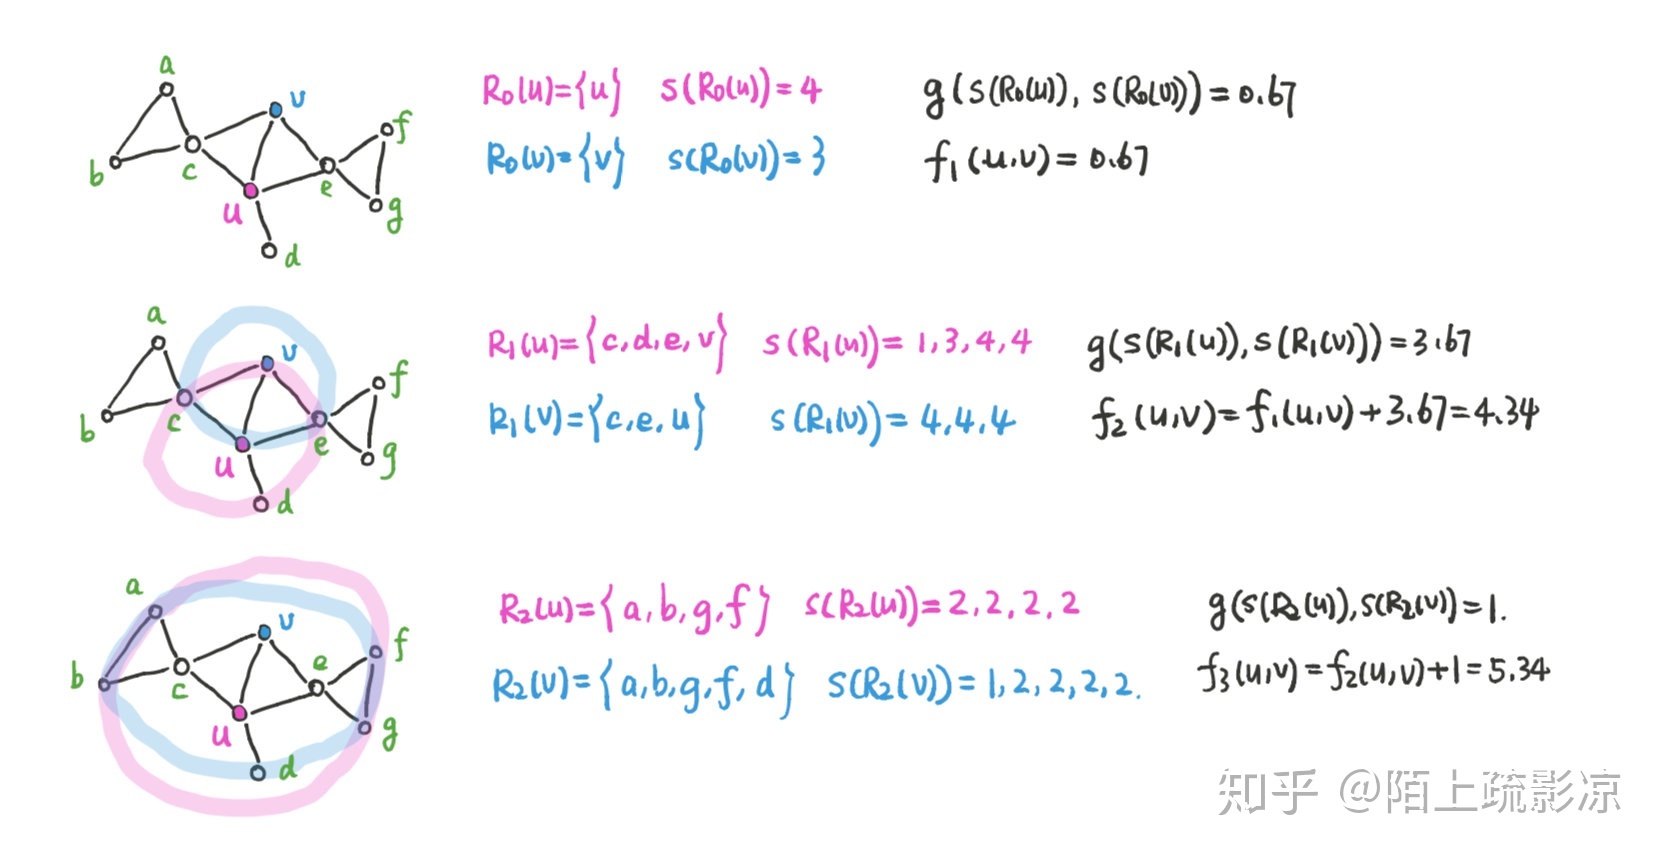 a
v
f
b
c
e
u
g
d
R₀(u)={u} s(R₀(u))=4
R₀(v)={v} s(R₀(v))=3
g(s(R₀(u)), s(R₀(v)))=0.67
f₁(u,v)=0.67
a
v
f
b
c
e
u
g
d
R₁(u)={c,d,e,v} s(R₁(u))=1,3,4,4
R₁(v)={c,e,u} s(R₁(v))=4,4,4
g(s(R₁(u)),s(R₁(v)))=3.67
f₂(u,v)=f₁(u,v)+3.67=4.34
a
v
f
b
c
e
u
g
d
R₂(u)={a,b,g,f} s(R₂(u))=2,2,2,2
R₂(v)={a,b,g,f,d} s(R₂(v))=1,2,2,2,2.
g(s(R₂(u)),s(R₂(v)))=1.
f₃(u,v)=f₂(u,v)+1=5.34
知乎 @陌上疏影凉